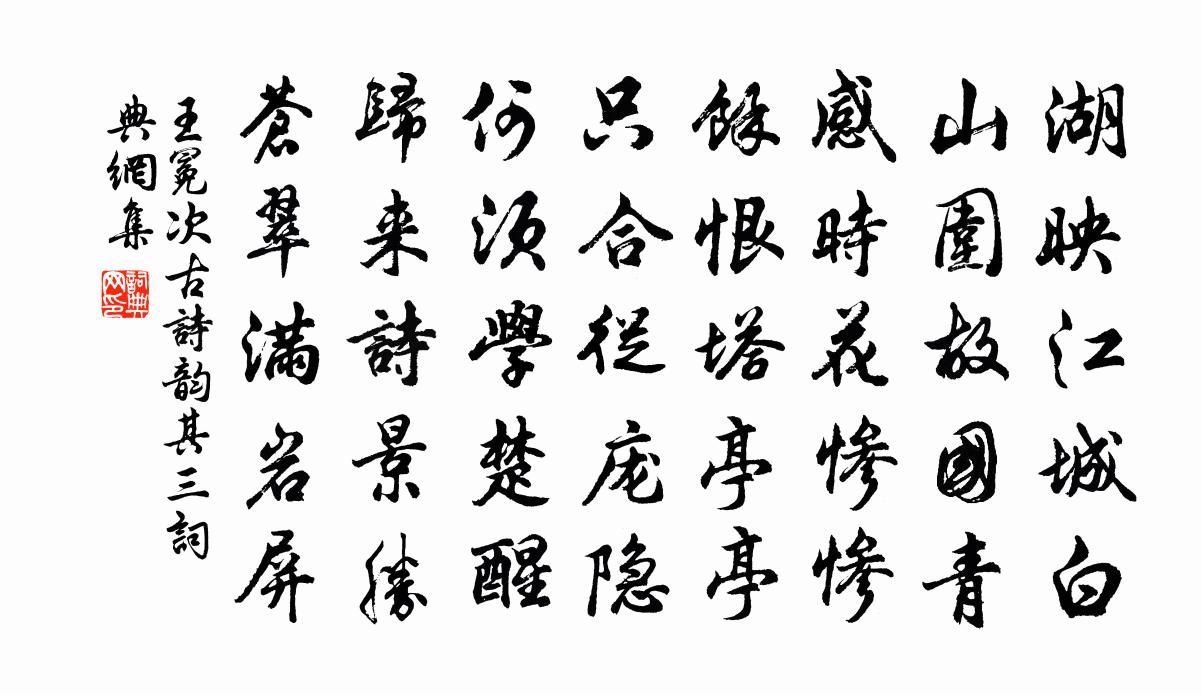 湖映江城白
山圍故國青
感時花慘慘
餘恨塔亭亭
只合從庞隐
何須學楚醒
歸来詩景勝
蒼翠满岩屏
王冕次古詩韵其三詞
典網集
詞典網印